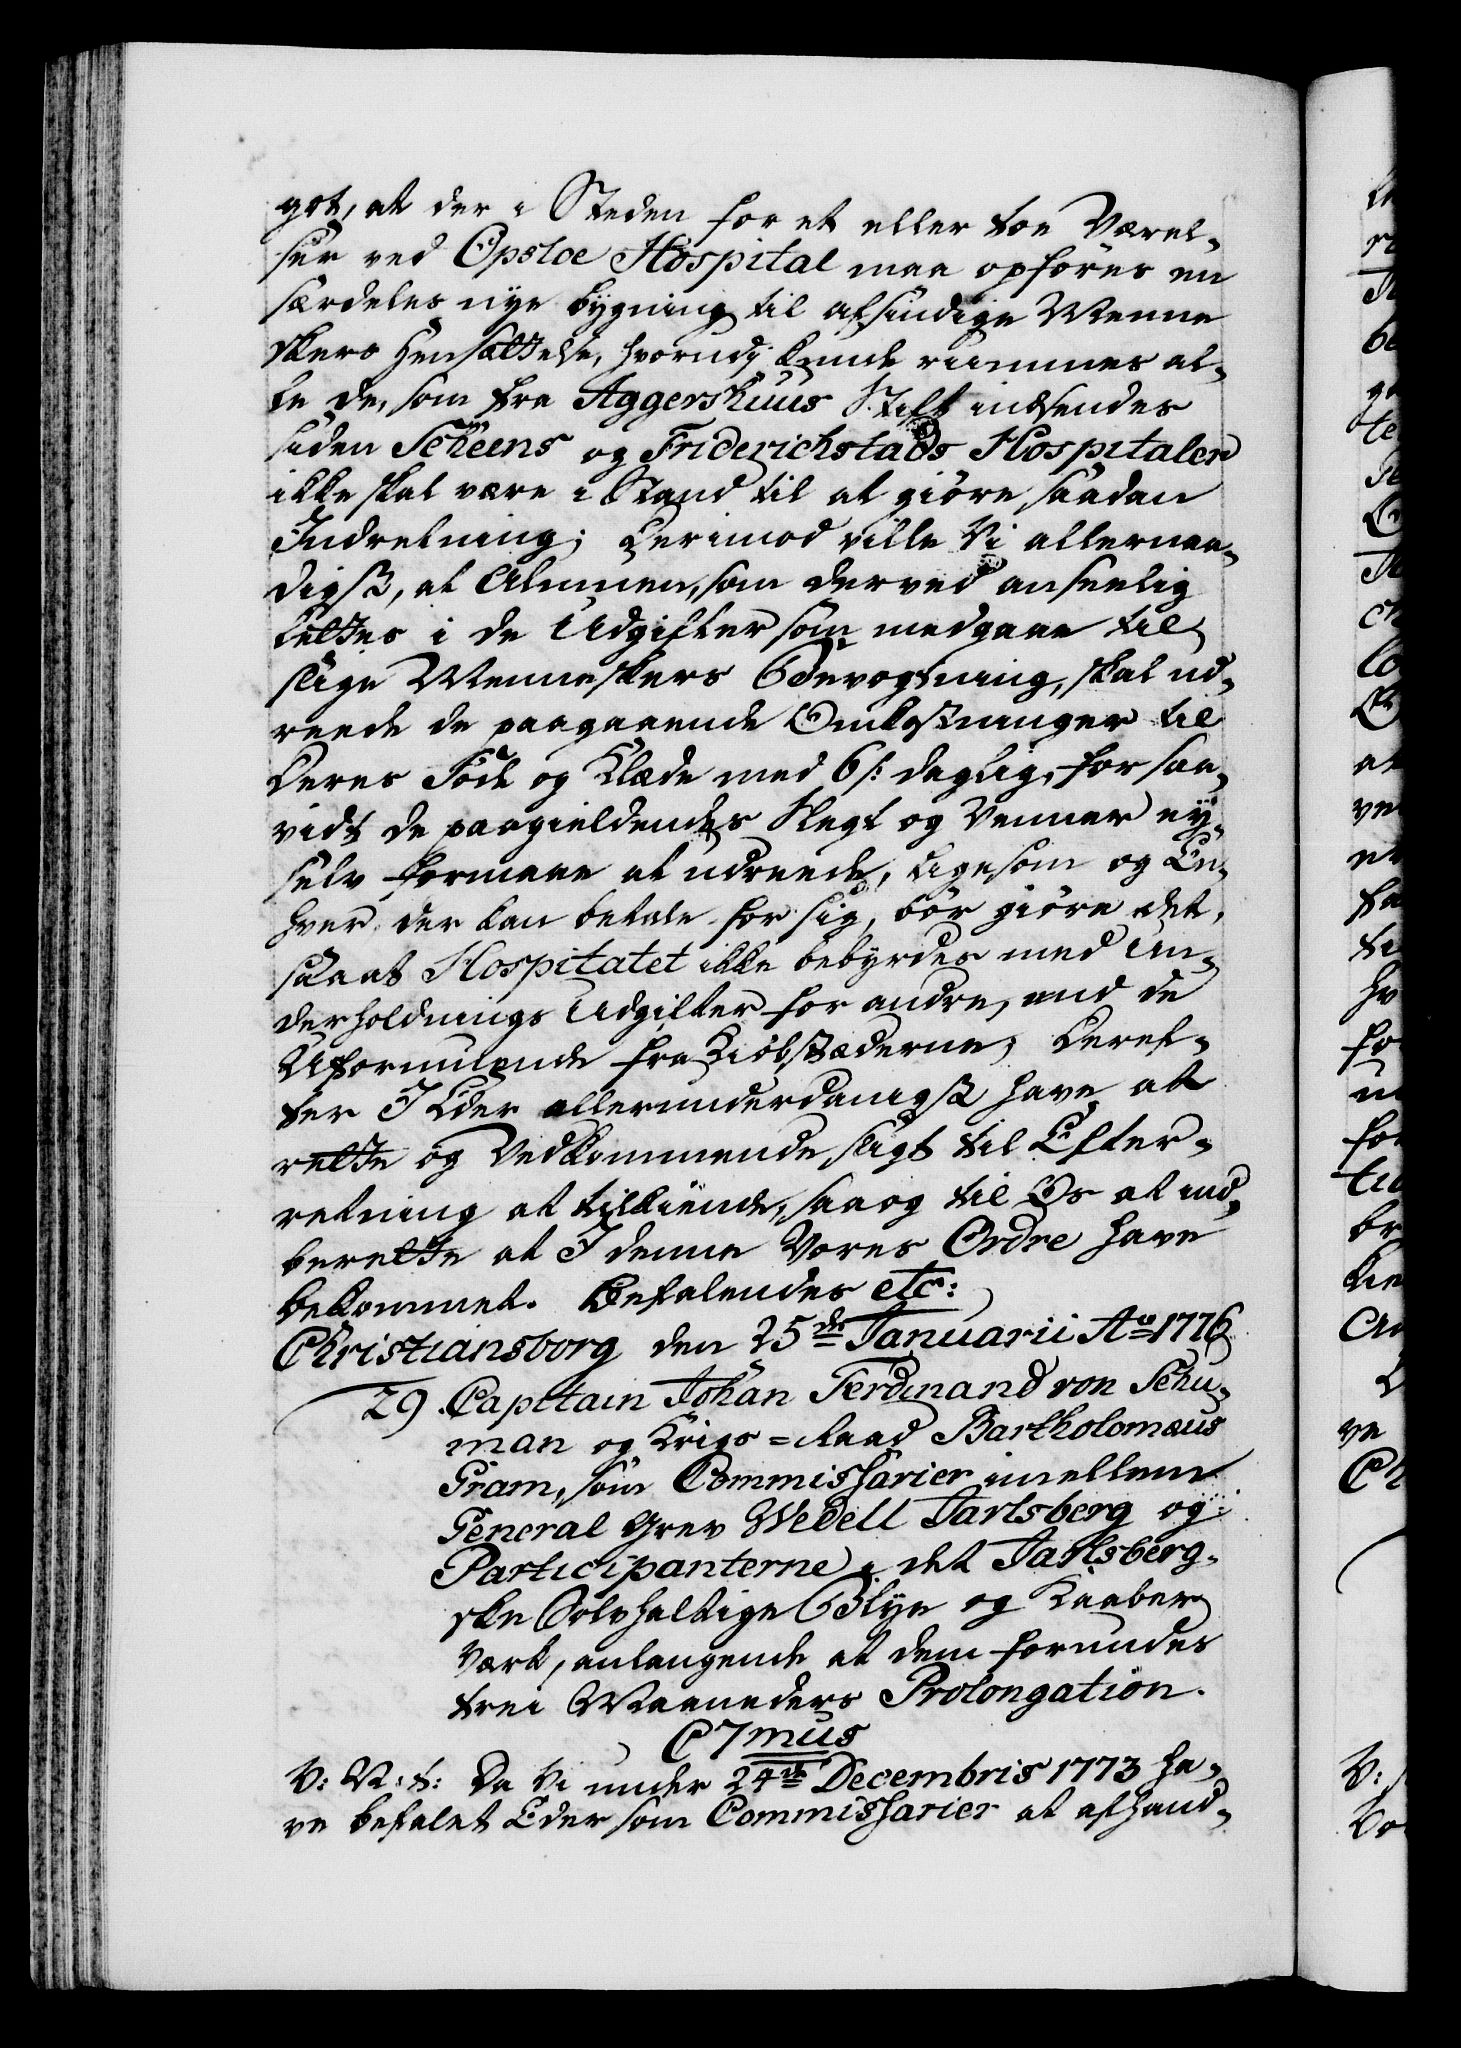 got, at der i Steden for et eller toe Værel-
ser ved Opsloe Hospital maa opføres en
særdeles nye bygning til afsindige Menne
skers Hensættelse, hvorudj kunde rummes al-
le de, som fra Aggershuus Stift indsendes
siden Scheens og Friderichstads Hospitaler
ikke skal være i Stand til at giøre saadan
Indretning; Derimod ville Vi allernaa-
digst, at Almuen, som derved anseelig
lettes i de Udgifter som medgaae til
slige Menneskers Bevogtning, skal ud-
reede de paagaaende Omkostninger til
Deres Føde og Klæde med 6 s: daglig, for saa-
vidt de paagieldendes Slegt og Venner ey
selv formaae at udreede, ligesom og En-
hver, der kan betale for sig, bør giøre det,
saa at Hospitatet ikke bebyrdes med Un-
derholdnings Udgifter for andre, end de
Uformuende fra Kiøbstæderne; Deref-
ter I Eder allerunderdanigst have at
rette og Vedkommende sligt til Efter-
retning at tilkiende, saa og til Os at ind-
berette at I denne Vores Ordre have
bekommet. Befalendes etc:
Christiansborg den 25de Januarii Ao 1776
29. Capitain Johan Ferdinand von Schu-
man og Krigs-Raad Bartholomæus
Gram, som Commissarier imellem
General Grev Wedell Jarlsberg og
Participanterne i det Jarlsberg-
ske Sølvhaltige Blye og Kaaber
Værk, anlangende at dem forundes
trei Maaneders Prolongation.
C 7mus
V: V: t: Da Vi under 24de Decembris 1773 ha-
ve befalet Eder som Commissarier at afhand-